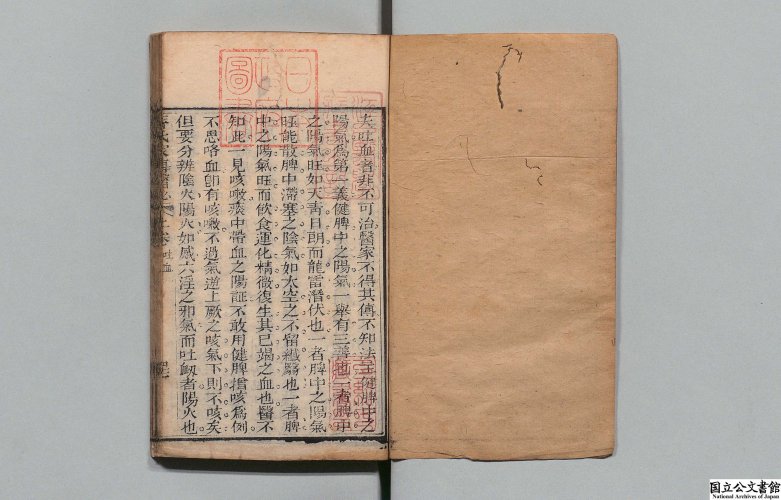 夫吐血者非不可治醫家不得其傳不知法宜健脾中之
陽氣爲第一義健脾中之陽氣一舉有三善也一者脾中
之陽氣旺如天青日朗而龍雷潛伏也一者脾中之陽氣
旺能散脾中滯塞之陰氣如太空之不留纖翳也一者脾
中之陽氣旺而飲食運化精微復生其已竭之血也醫不
知此一見咳嗽痰中帶血之陽証不敢用健脾增咳爲例
不思咯血卽有咳嗽不過氣逆上厥之咳氣下則不咳矣
但要分辨陰火陽火如感六淫之邪氣而吐衂者陽火也
國立公文書館
National Archives of Japan